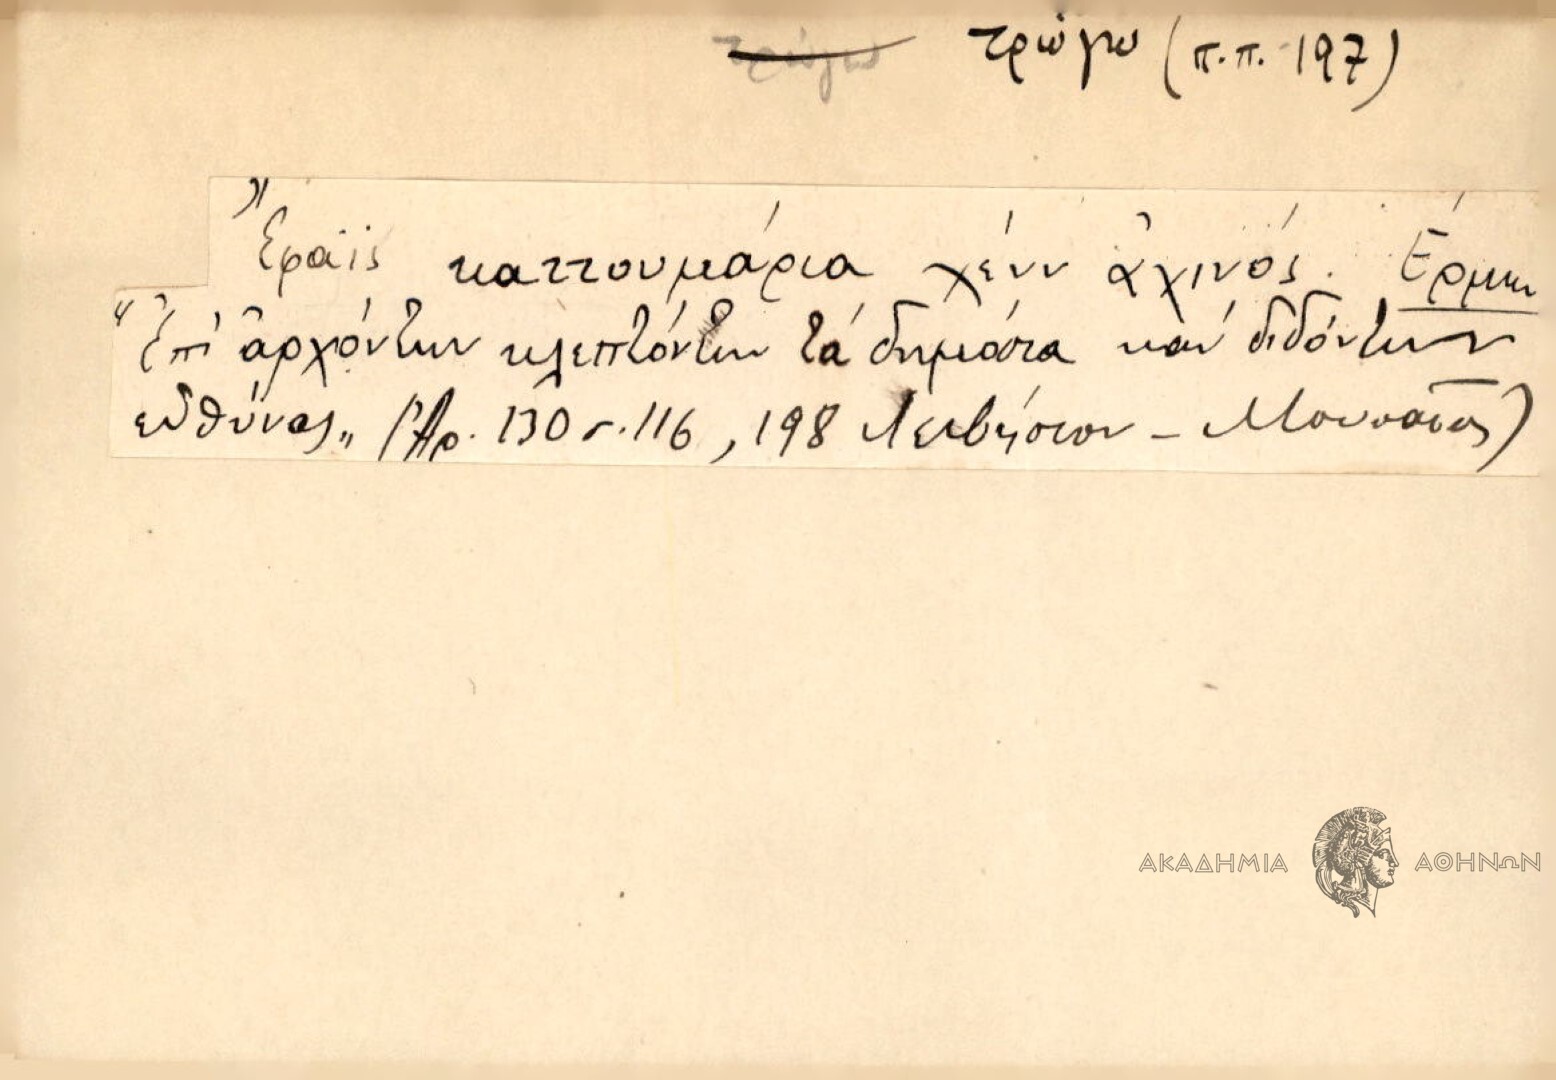 τρώγω τρώγω (π.π. 197)
Ἔφαϊς καττουμάρια χένν ἀχινός. Ἑρμην
"Ἐπὶ ἀρχόντων κλεπτόντων τὰ δημόσια καὶ διδόντων
εὐθύνας„ (Ἀρ. 130 σ. 116, 198 Λειβήσιον - Μουσαῖος)
ΑΚΑΔΗΜΙΑ ΑΘΗΝΩΝ